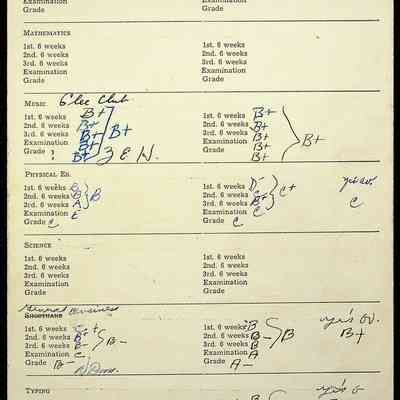 Examination Examination
Grade Grade
MATHEMATICS
1st. 6 weeks 1st. 6 weeks
2nd. 6 weeks 2nd. 6 weeks
3rd. 6 weeks 3rd. 6 weeks
Examination Examination
Grade Grade
MUSIC Glee Club
1st. 6 weeks B+ 1st. 6 weeks B+
2nd. 6 weeks B+ 2nd. 6 weeks B+
3rd. 6 weeks B+ B+ 3rd. 6 weeks B+ B+
Examination B+ Examination B+
Grade B+ Grade B+
PHYSICAL ED.
1st. 6 weeks 1st. 6 weeks D-
2nd. 6 weeks B B 2nd. 6 weeks C C+
3rd. 6 weeks A 3rd. 6 weeks B+ C
Examination E Examination C
Grade C Grade C
SCIENCE
1st. 6 weeks 1st. 6 weeks
2nd. 6 weeks 2nd. 6 weeks
3rd. 6 weeks 3rd. 6 weeks
Examination Examination
Grade Grade
General Business
SHORTHAND
1st. 6 weeks C+ 1st. 6 weeks B yr's av.
2nd. 6 weeks B+ 2nd. 6 weeks B B B+
3rd. 6 weeks B- B- 3rd. 6 weeks B-
Examination C Examination A
Grade B- Grade A-
TYPING
1st. 6 weeks 1st. 6 weeks B